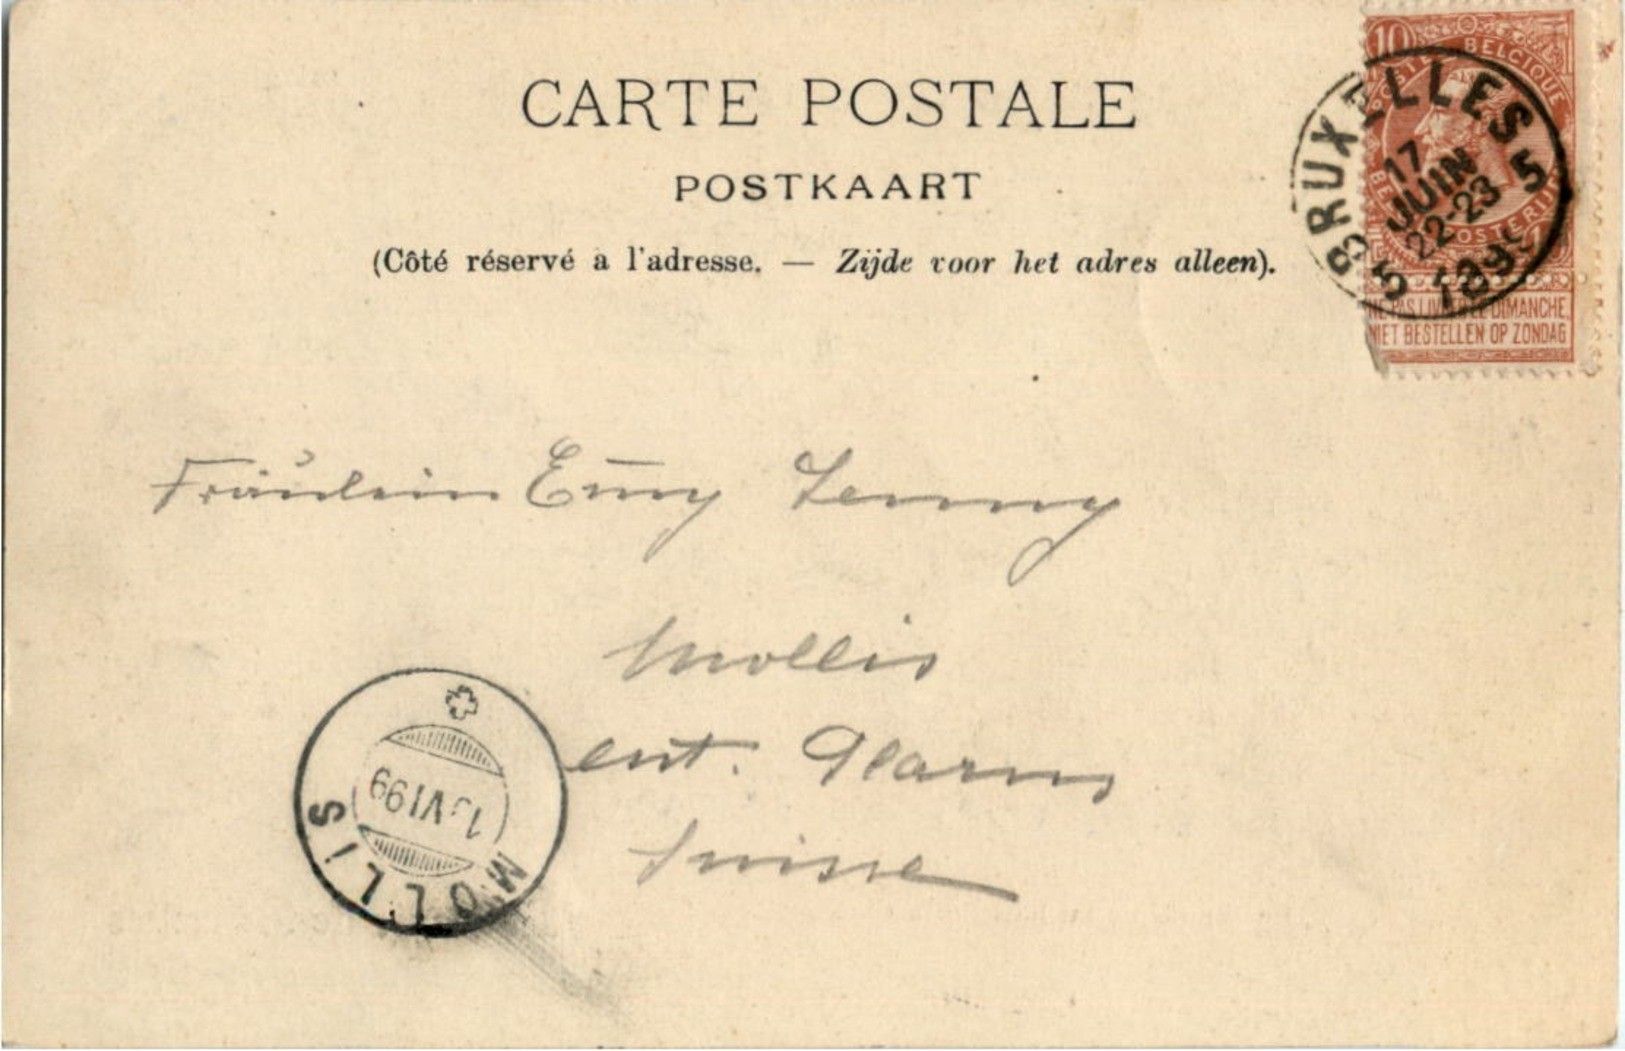 CARTE POSTALE
POSTKAART
(Côté réservé a l'adresse. — Zijde voor het adres alleen).
10
BELGIQUE
BRUXELLES 5
17
JUIN
22-23
5 1899
NE PAS LIVRER LE DIMANCHE
NIET BESTELLEN OP ZONDAG
Fräulein Em̄y Jenny
Mollis
cnt. Glarus
Suisse
VI 99
MOLLIS